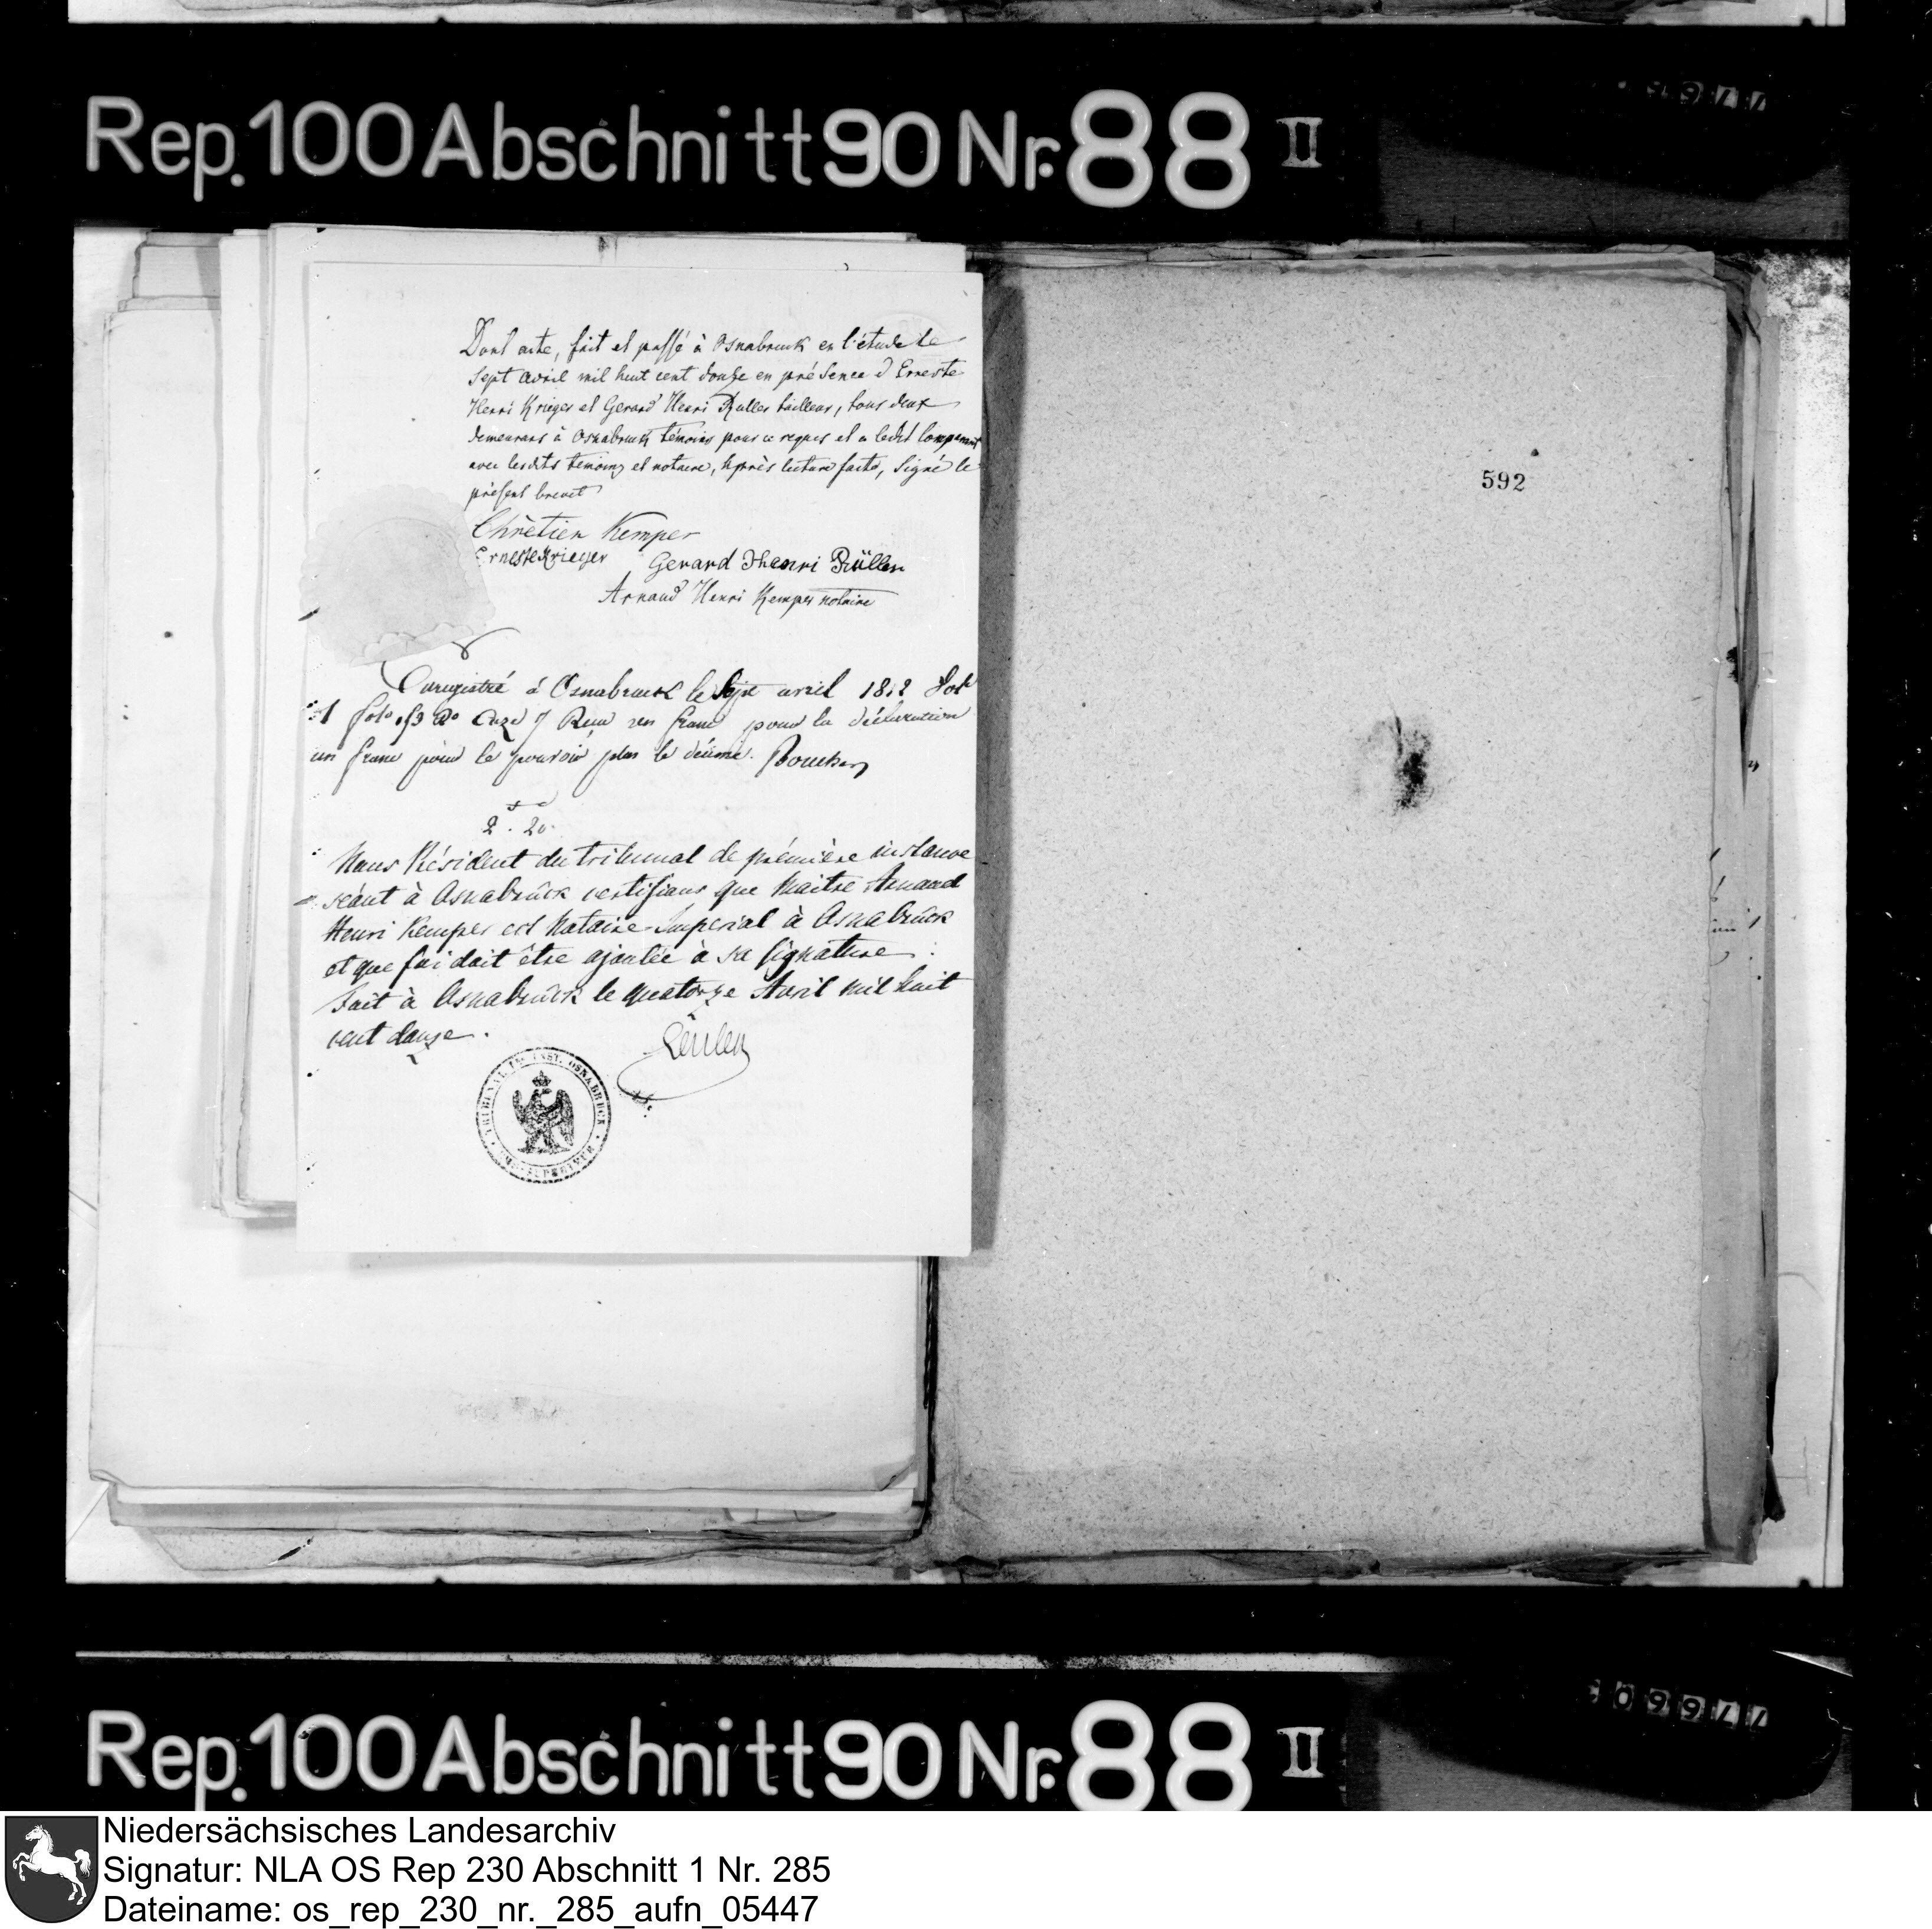 Rep.100 Abschnitt 90 Nr. 88 II
Dont acte, fait et passé à Osnabruck en l'étude le
sept avril mil huit cent douze en présence d'Erneste
Henri Krieger et Gerard Henri Rulles tailleur, tous deux
demeurans à Osnabruck témoins pour ce requis et a ledit comparant
avec lesdits temoins et notaire, après lecture faite, signé le
présent brevet
Chrètien Kemper
Erneste Krieger Gerard Henri Rüller
Arnaud Henri Kemper notaire
Enregistré à Osnabruck le sept avril 1812 Vol
folo Ro Case 7 Reçu un franc pour la déclaration
un franc pour le pouvoir plus le décime.
2. 20.
Nous Président du tribunal de première instance
séant à Osnabrück certifions que Maitre Arnaud
Henri Kemper est Notaire Imperial à Osnabrück
et que foi doit être ajoutée à sa signature
Fait à Osnabrück le quatorze Avril mil huit
cent douze.
TRIBUNAL INST. OSNABRUCK
592
Rep.100 Abschnitt 90 Nr. 88 II
Niedersächsisches Landesarchiv
Signatur: NLA OS Rep 230 Abschnitt 1 Nr. 285
Dateiname: os_rep_230_nr._285_aufn_05447